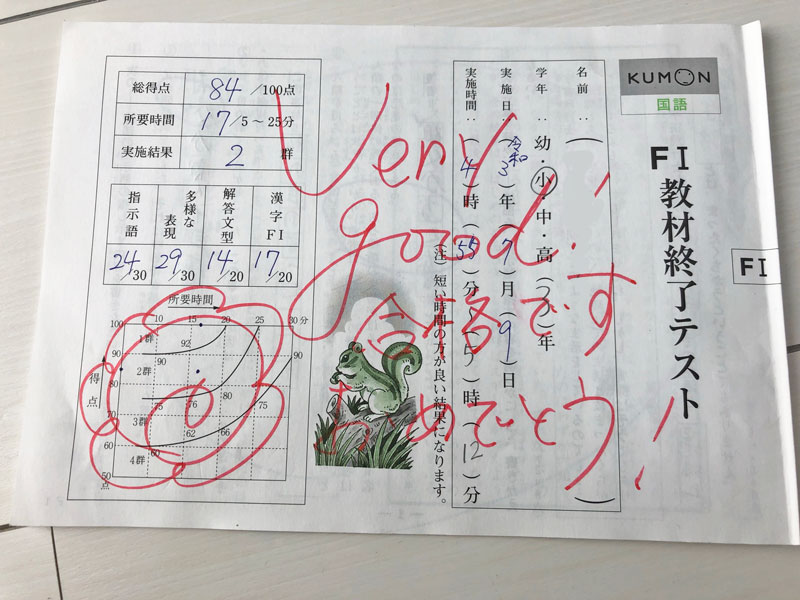 KUMON
国語
FⅠ教材終了テスト
FⅠ
名前：（　）
学年：幼・小・中・高（3）年
実施日：（令和3）年（7）月（9）日
実施時間：（4）時（55）分〜（5）時（12）分
（注）短い時間の方が良い結果になります。
総得点 84/100点
所要時間 17/5〜25分
実施結果 2群
指示語 多様な表現 解答文型 漢字FⅠ
24/30 29/30 14/20 17/20
所要時間
10 15 20 25 30分
得点
100
90
80
70
60
50点
1群 92
2群 90 90
3群 75 76 80 90
4群 60 62 66 76
Very
good!
合格です
おめでとう!